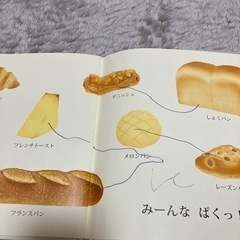 デニッシュ
しょくパン
フレンチトースト
メロンパン
レーズン
フランスパン
みーんな ぱくっ